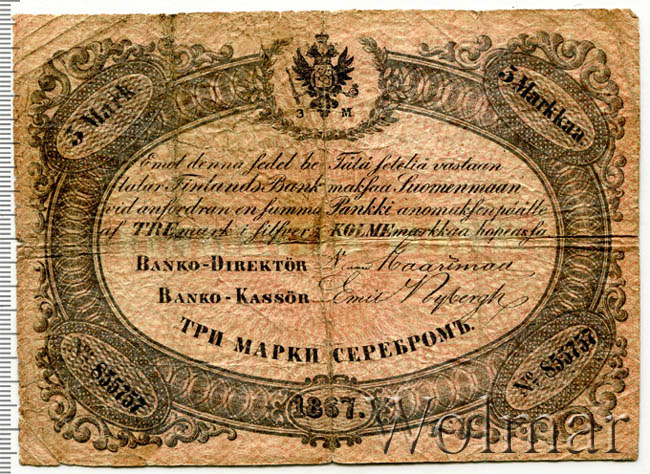 3 Mark
3 Markkaa
3 M.
Emot denna sedel be
talar Finlands Bank
vid anfordran en summa
af TRE mark i silfver
Tätä seteliä vastaan
maksaa Suomenmaan
Pankki anomuksen päälle
KOLME markkaa hopeassa
BANKO-DIREKTÖR
BANKO-KASSÖR Emil Nybergh
ТРИ МАРКИ СЕРЕБРОМЪ.
No. 855757
No. 855757
1867.
Wolmar